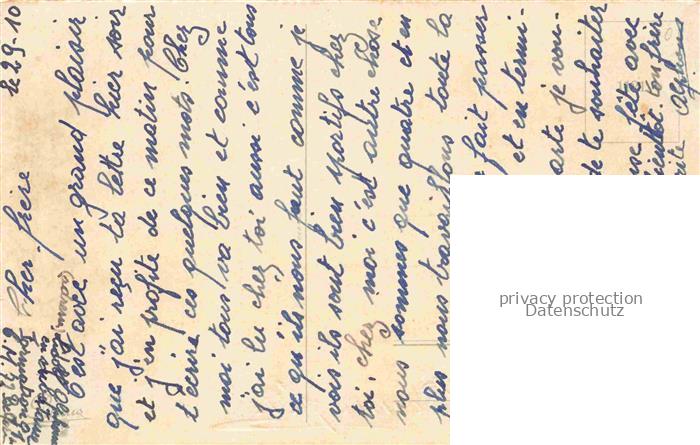 le 29-10
Cher frère
C'est avec un grand plaisir
que j'ai reçu ta lettre hier soir
et j'en profite de ce matin pour
t'écrire ces quelques mots. Chez
moi tous va bien et comme
j'ai lu chez toi aussi c'est tous
ce qu'ils nous faut comme je
vois ils sont bien sportifs chez
toi. chez moi c'est autre chose
nous sommes que quatre et en
plus nous travaillons toute la
fait passer
et en termi-
arte je vou-
de te souhaiter
se fête avec
bientôt. ton frère
Alphonse
privacy protection
Datenschutz